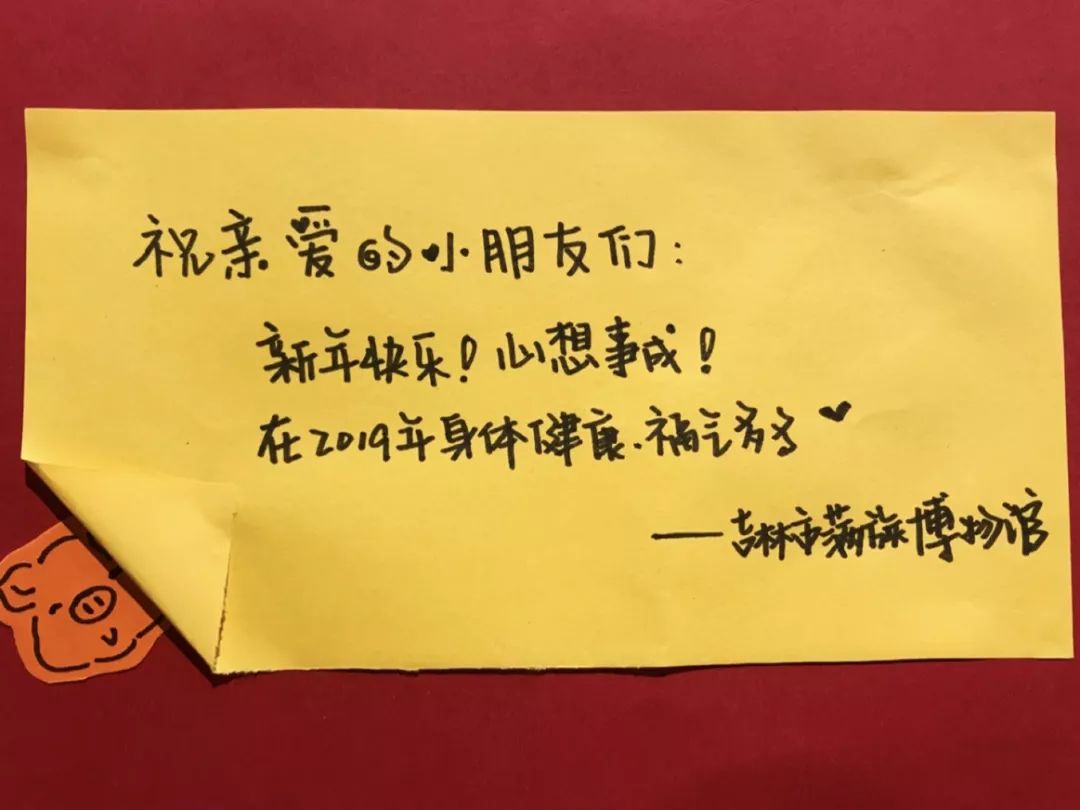 祝亲爱的小朋友们:
新年快乐!心想事成!
在2019年身体健康.福气多多
——吉林市满族博物馆